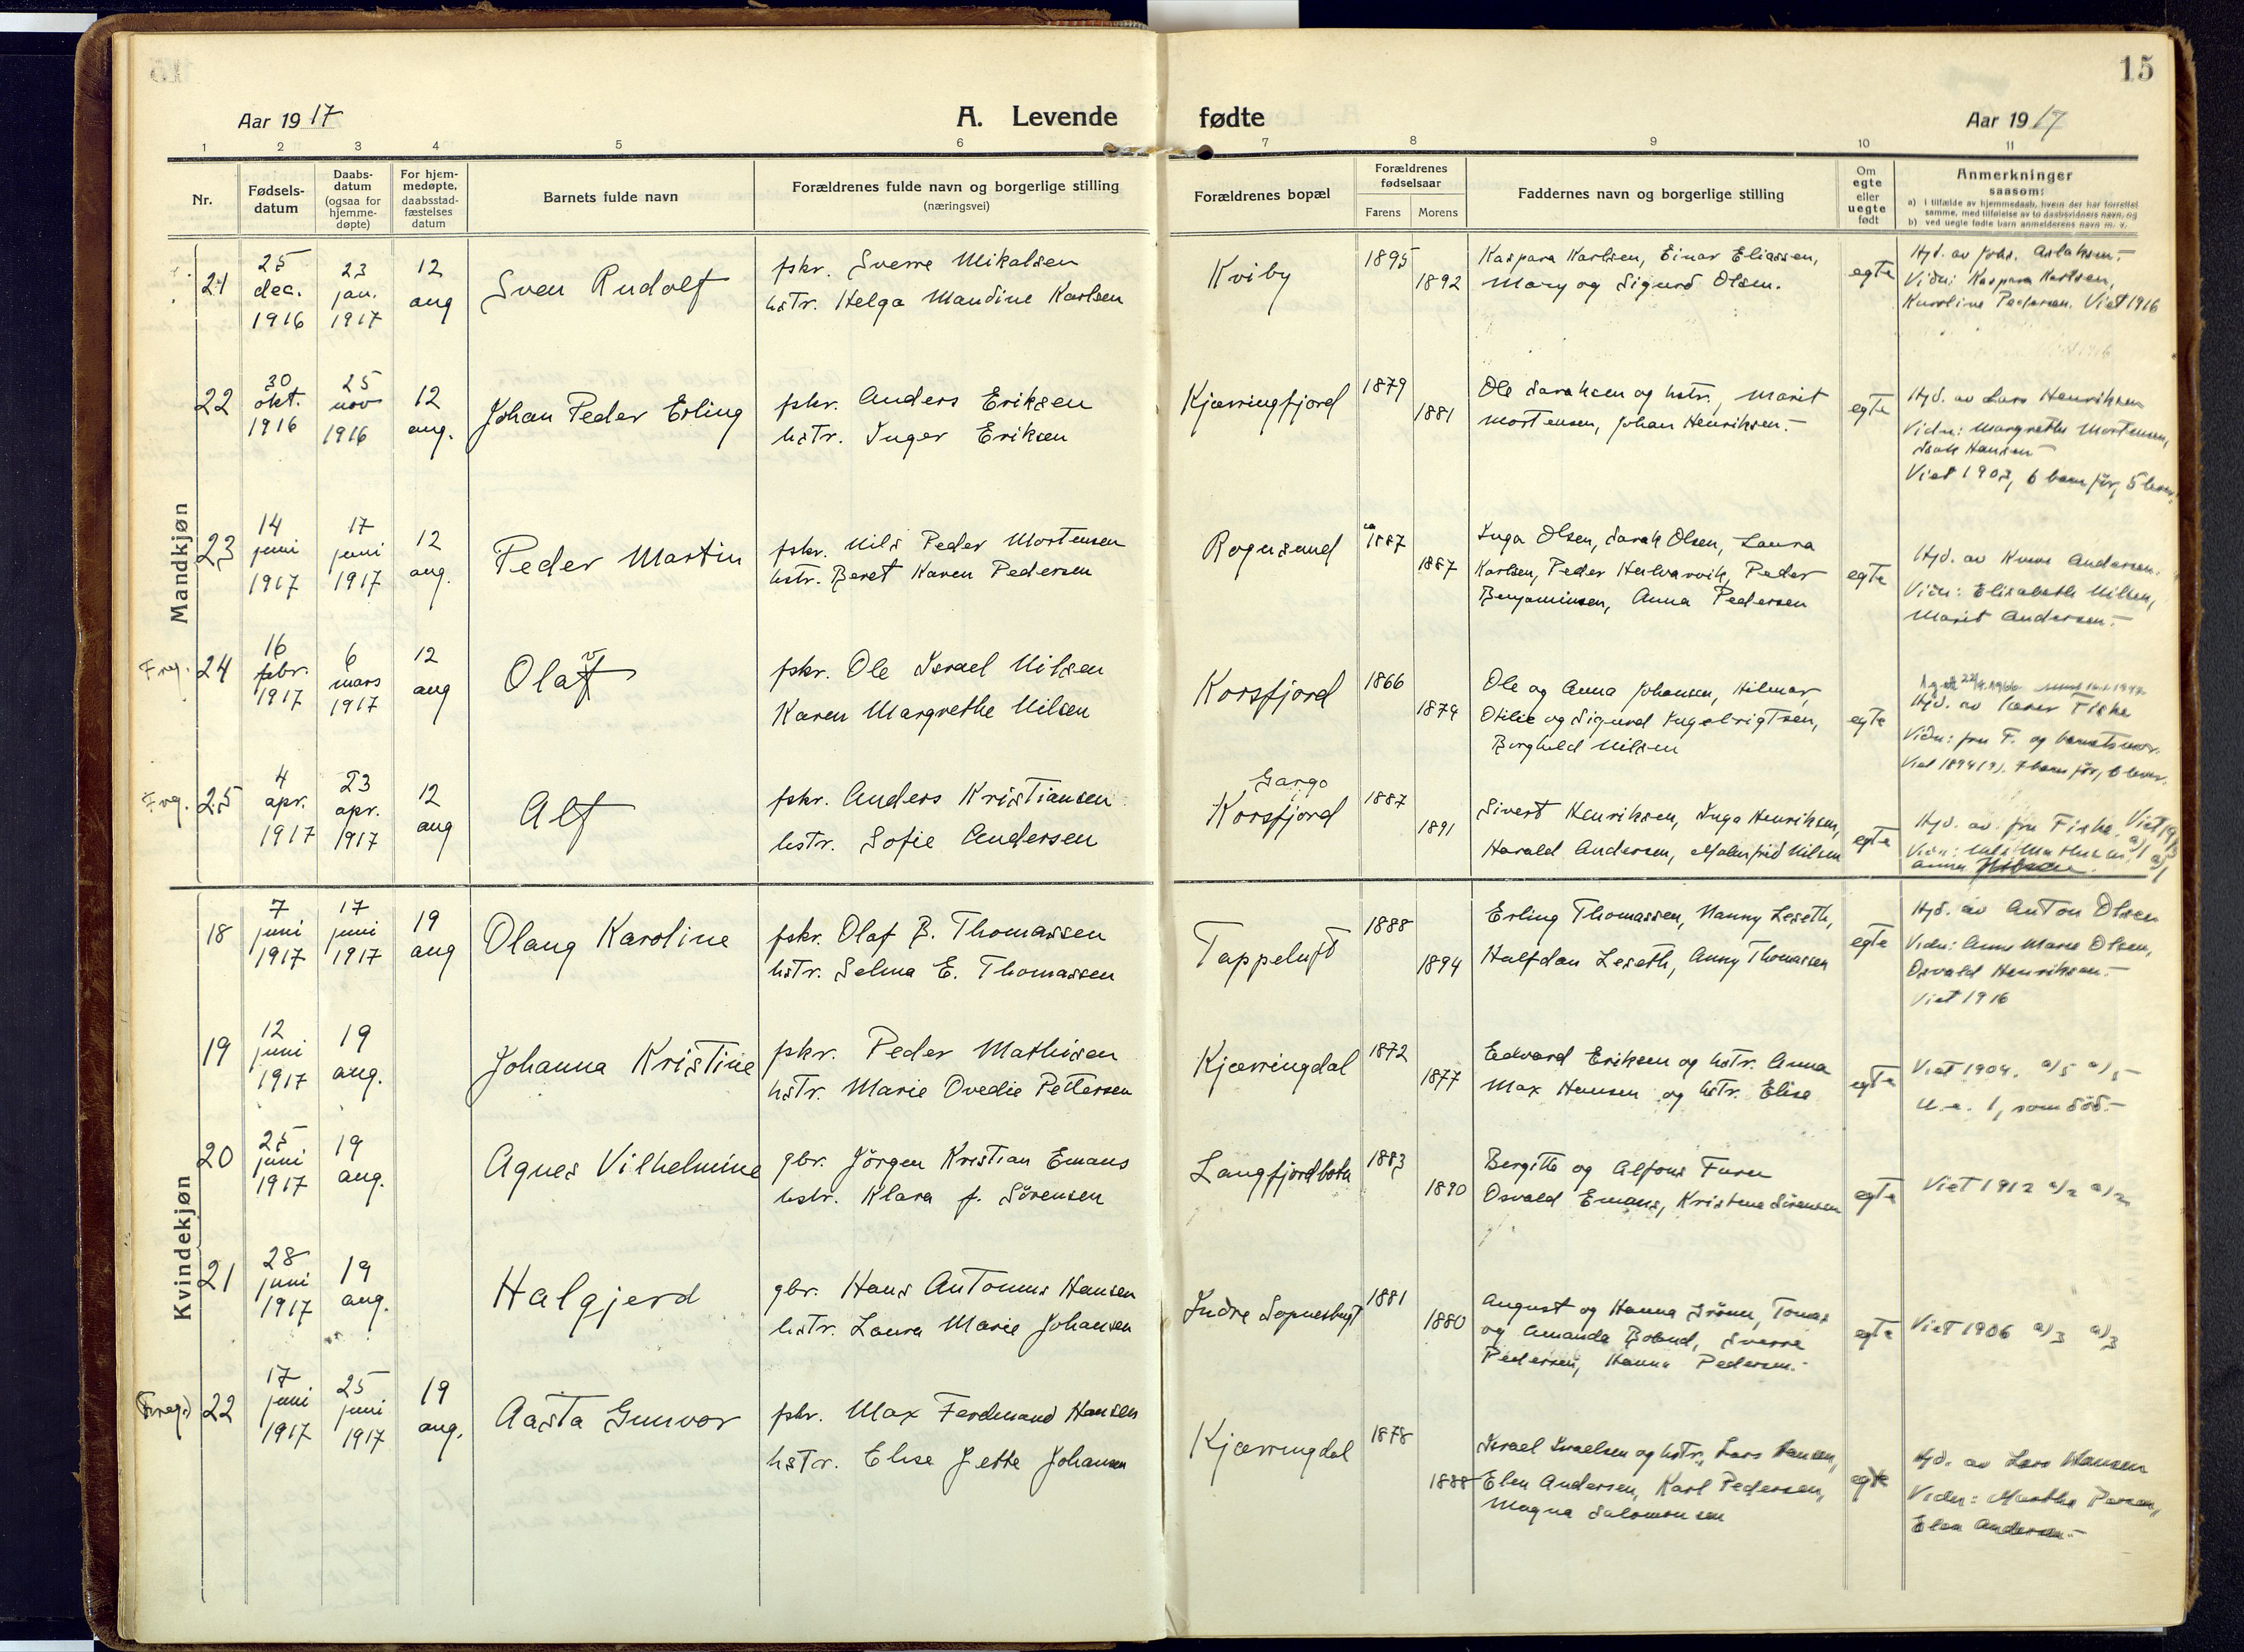 15
Aar 1917
A. Levende fødte
Aar 1917
1 2 3 4 5 6 7 8 9 10 11
Nr.
Fødsels-
datum
Daabs-
datum
(ogsaa for
hjemme-
døpte)
For hjem-
medøpte,
daabsstad-
fæstelses
datum
Barnets fulde navn
Forældrenes fulde navn og borgerlige stilling
(næringsvei)
Forældrenes bopæl
Forældrenes
fødselsaar
Farens Morens
Faddernes navn og borgerlige stilling
Om
egte
eller
uegte
født
Anmerkninger
saasom:
a) i tilfælde av hjemmedaab, hvem der har forrettet
samme, med tilføielse av to daabsvidners navn, og
b) ved uegte fødte barn anmelderens navn m. v.
Mandkjøn
21
25
dec.
1916
23
jan.
1917
12
aug
Sven Rudolf
fskr. Sverre Mikalsen
hstr. Helga Mandine Karlsen
Kviby
1895
1892
Kaspara Karlsen, Einar Eliassen,
Mary og Sigurd Olsen.
egte
Hjd. av Johs. Aslaksen.-
Vidn: Kaspara Karlsen,
Karoline Pedersen. Viet 1916
22
30
okt.
1916
25
nov
1916
12
aug.
Johan Peder Erling
fskr. Anders Eriksen
hstr. Inger Eriksen
Kjærringfjord
1879
1881
Ole Isaksen og hstr., Marit
Mortensen, Johan Henriksen.-
egte
Hjd. av Lars Henriksen
Vidn: Margrethe Mortensen,
Isak Hansen
Viet 1903, 6 barn før, 5 lever.
23
14
juni
1917
17
juni
1917
12
aug.
Peder Martin
fskr. Nils Peder Mortensen
hstr. Beret Karen Pedersen
Rognsund
ca
1887
1887
Inga Olsen, Sarah Olsen, Laura
Karlsen, Peder Halvarvik, Peder
Benjaminsen, Anna Pedersen
egte
Hjd. av Andersen.
Vidn: Elisabeth Nilsen,
Marit Andersen.-
Frg. 24
16
febr.
1917
6
mars
1917
12
aug
Olaf
v
fskr. Ole Israel Nilsen
Karen Margrethe Nilsen
Korsfjord
1866
1874
Ole og Anna Johansen, Hilmar,
Otilie og Sigurd Ingebrigtsen,
Borghild Nilsen
egte
Hjd. av lærer Fiske
Vidn: fru F. og barnets mor.
Viet 1894(?). 7 barn før, 6 lever.
Frg. 25
4
apr.
1917
23
apr.
1917
12
aug
Alf
fskr. Anders Kristiansen
hstr. Sofie Andersen
Gargo
i
Korsfjord
1887
1891
Sivert Henriksen, Inga Henriksen,
Harald Andersen, Malmfrid Nilsen
egte
Hjd. av fru Fiske. Viet 1913
a/1 a/1
Vidn: Nils Mathisen,
Anna Nilsen.
Kvindekjøn
18
7
juni
1917
17
juni
1917
19
aug
Olaug Karoline
fskr. Olaf B. Thomassen
hstr. Selma E. Thomassen
Tappeluft
1888
1894
Erling Thomassen, Nanny Leseth,
Halfdan Leseth, Anny Thomassen
egte
Hjd. av Anton Olsen
Vidn: Anne Marie Olsen,
Osvald Henriksen.-
Viet 1916
19
12
juni
1917
19
aug.
Johanna Kristine
fskr. Peder Mathisen
hstr. Marie Ovedie Pettersen
Kjærringdal
1872
1877
Edvard Eriksen og hstr. Anna
Max Hansen og hstr. Elise
egte
Viet 1904. a/5 a/5
U. e. 1, som død.-
20
25
juni
1917
19
aug.
Agnes Vilhelmine
gbr. Jörgen Kristian Emaus
hstr. Klara f. Sörensen
Langfjordbotn
1883
1890
Bergitte og Alfons Furu
Osvald Emaus, Kristine Sörensen
egte
Viet 1912 a/2 a/2
21
28
juni
1917
19
aug.
Halgjerd
gbr. Hans Antonius Hansen
hstr. Laura Marie Johansen
Indre Sopnesbugt
1881
1880
August og Hanna Grönn, Tomas
og Amanda Bolund, Sverre
Pedersen, Hanna Pedersen.-
egte
Viet 1906 a/3 a/3
(Freg.) 22
17
juni
1917
25
juni
1917
19
aug.
Aasta Gunvor
fskr. Max Ferdinand Hansen
hstr. Elise Jette Johansen
Kjærringdal
1878
1888
Israel Israelsen og hstr., Lars Hansen,
Elen Andersen, Karl Pedersen,
Magna Salomonsen
egte
Hjd. av Lars Hansen
Vidn: Martha
Elen Andersen.-